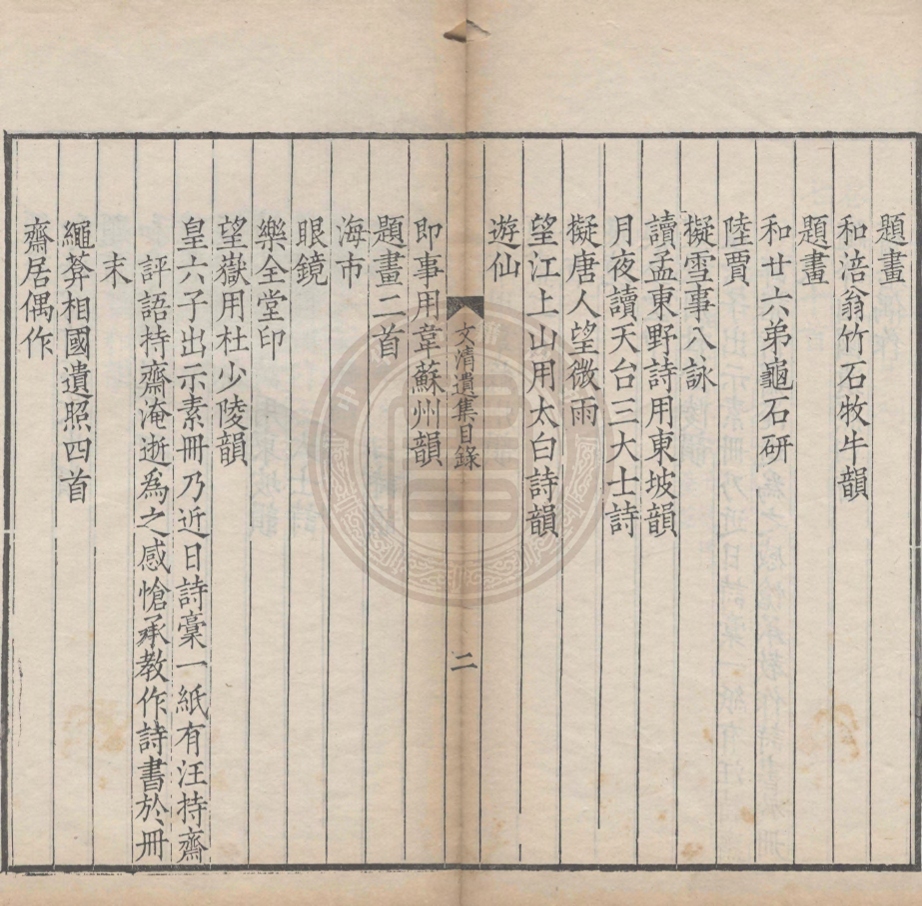 題畫
和涪翁竹石牧牛韻
題畫
和廿六弟龜石研
陸賈
擬雪事八詠
讀孟東野詩用東坡韻
月夜讀天台三大士詩
擬唐人望微雨
望江上山用太白詩韻
遊仙
文清遺集目錄
二
即事用韋蘇州韻
題畫二首
海市
眼鏡
樂全堂印
望嶽用杜少陵韻
皇六子出示素冊乃近日詩稾一紙有汪持齋
評語持齋淹逝爲之感愴承教作詩書於冊
末
繩莽相國遺照四首
齋居偶作